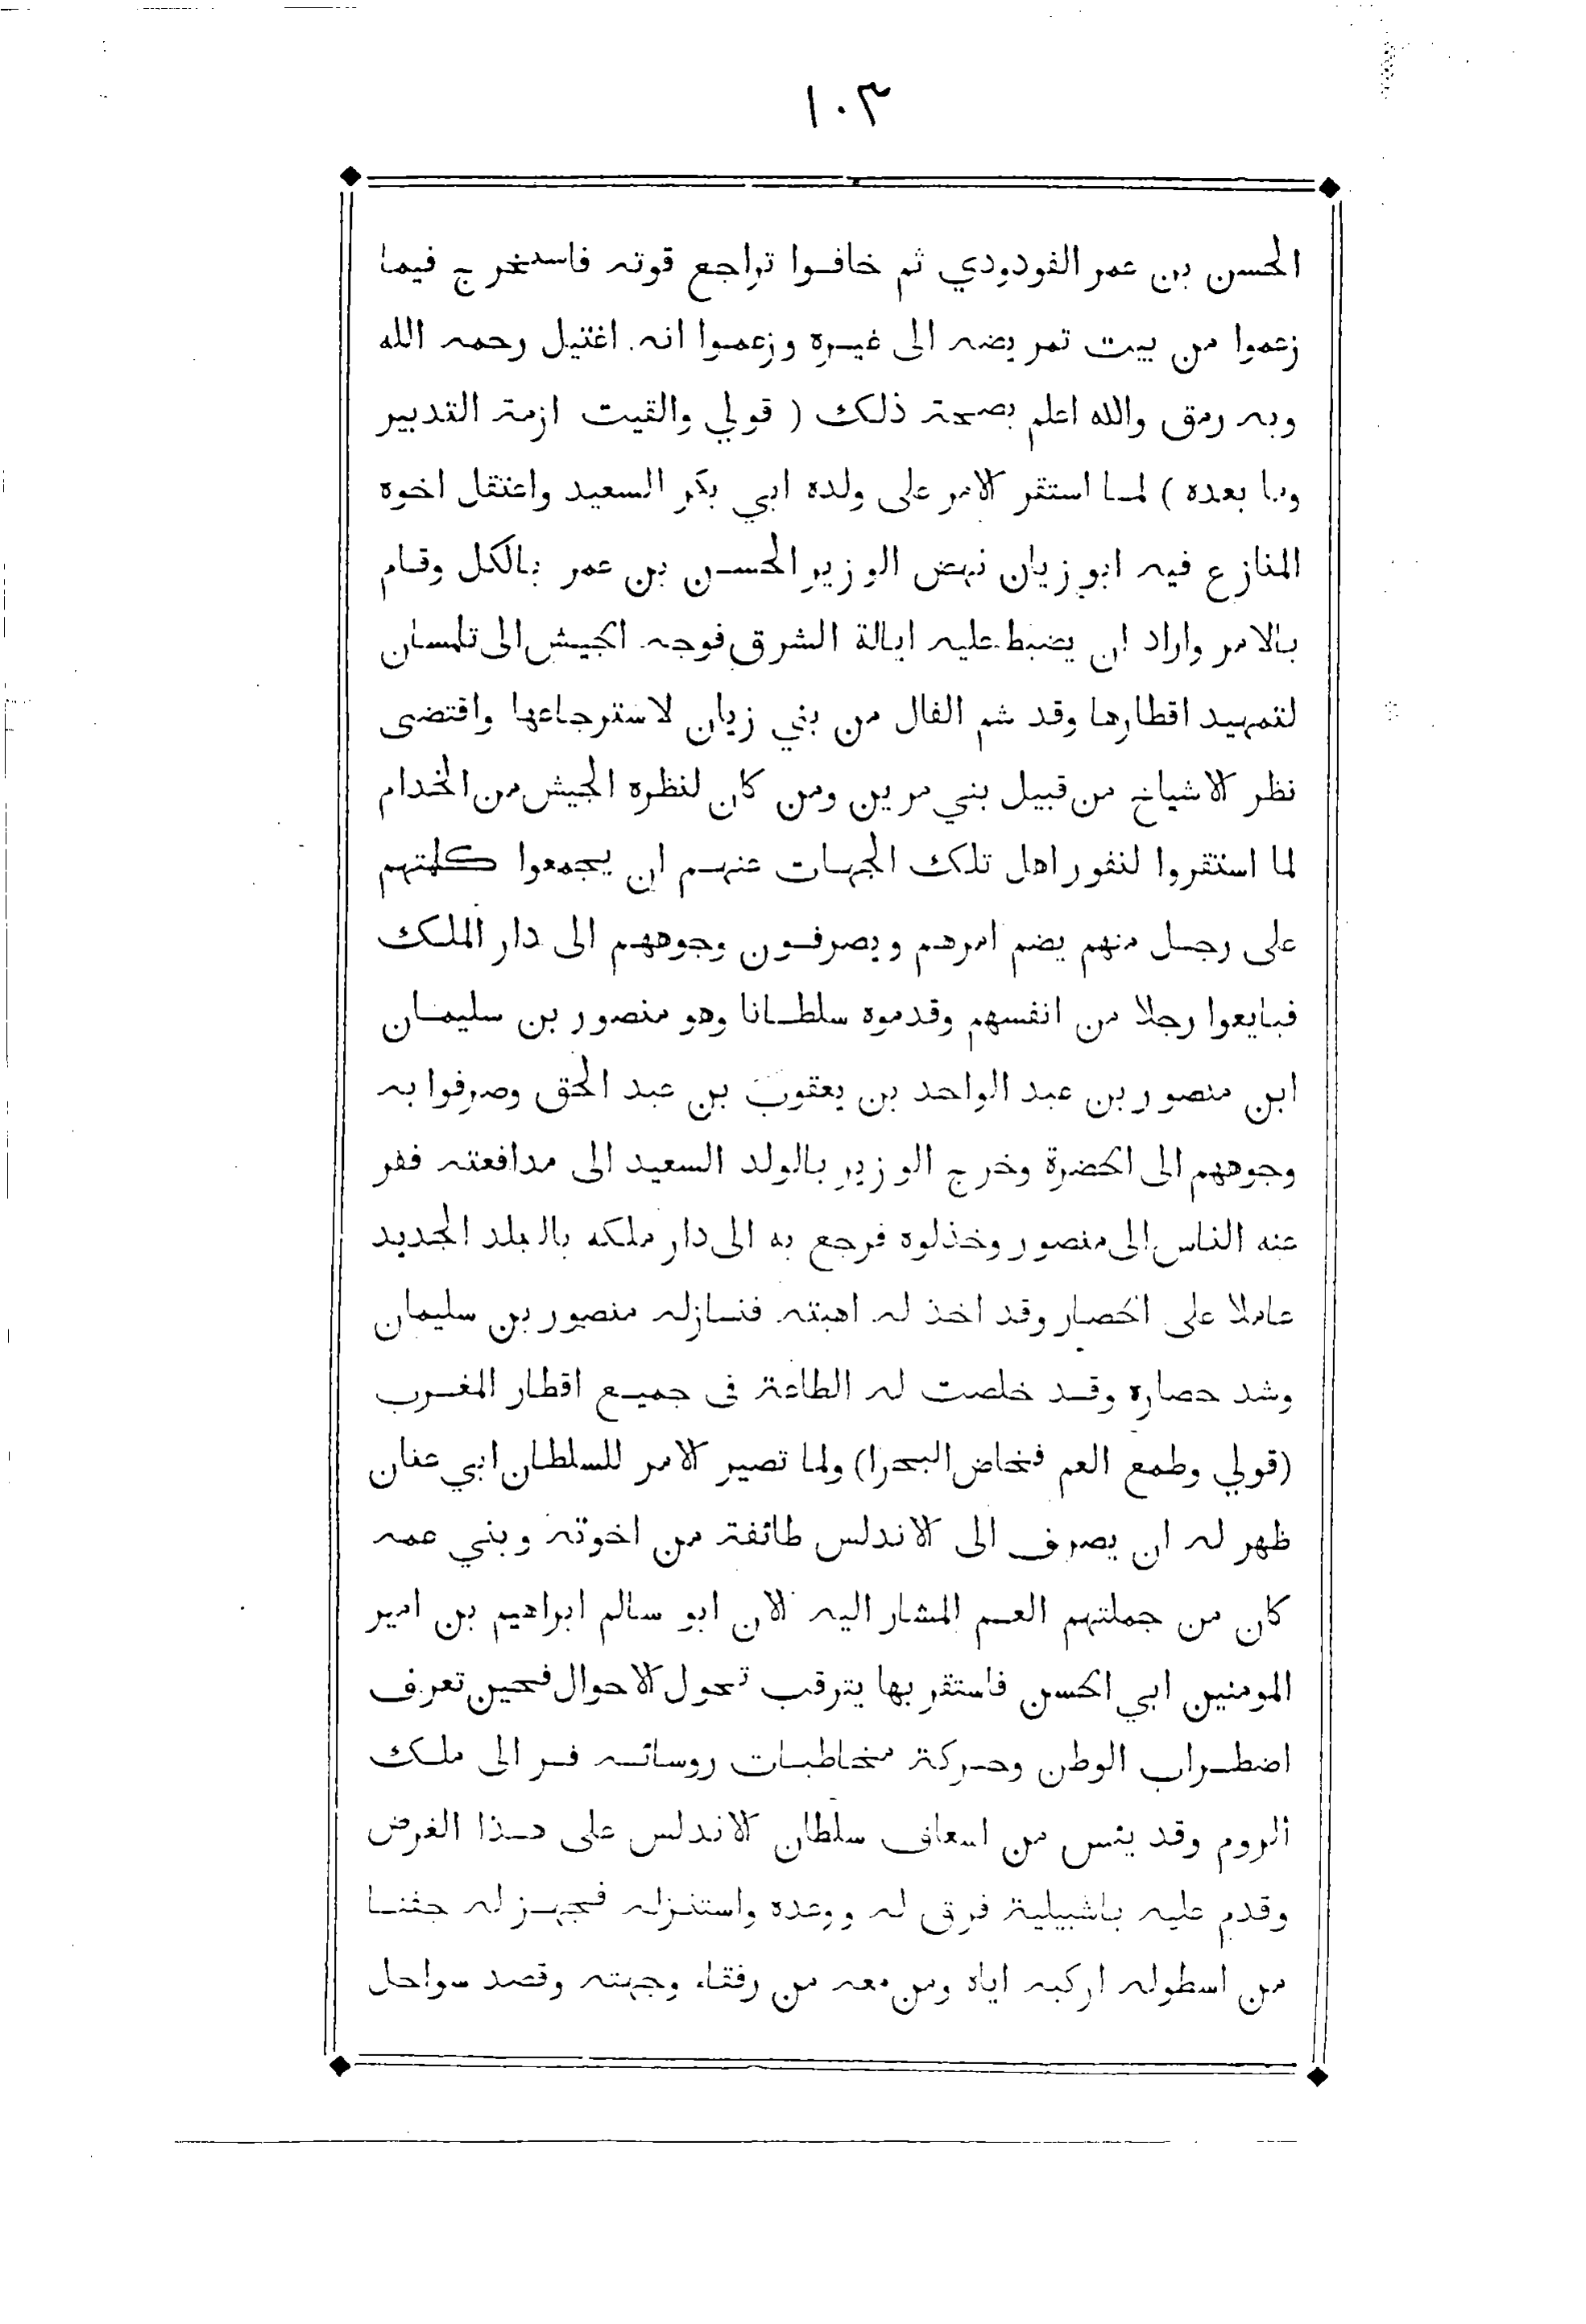 ١٠٣
الحسن بن عمر الفودودي ثم خافوا تراجع قوته فاستخرج فيما
زعموا من بيت تمريضه الى غيره وزعموا انه اغتيل رحمه الله
وبه رمق والله اعلم بصحة ذلك ( قولي والقيت ازمة التدبير
وما بعده ) لما استقر الامر على ولده ابي بكر السعيد واعتقل اخوه
المنازع فيه ابو زيان نهض الوزير الحسن بن عمر بالكل وقام
بالامر واراد ان يضبط عليه ايالة الشرق فوجه الجيش الى تلمسان
لتمهيد اقطارها وقد شم الفال من بني زيان لاسترجاعها واقتضى
نظر الاشياخ من قبيل بني مرين ومن كان لنظره الجيش من الخدام
لما استقروا لنفور اهل تلك الجهات عنهم ان يجمعوا كلمتهم
على رجل منهم يضم امرهم ويصرفون وجوههم الى دار الملك
فبايعوا رجلا من انفسهم وقدموه سلطانا وهو منصور بن سليمان
ابن منصور بن عبد الواحد بن يعقوب بن عبد الحق وصرفوا به
وجوههم الى الحضرة وخرج الوزير بالولد السعيد الى مدافعته ففر
عنه الناس الى منصور وخذلوه فرجع به الى دار ملكه بالبلد الجديد
عاملا على الحصار وقد اخذ له اهبته فنازله منصور بن سليمان
وشد حصاره وقد خلصت له الطاعة في جميع اقطار المغرب
(قولي وطمع العم فخاض البحرا) ولما تصير الامر للسلطان ابي عنان
ظهر له ان يصرف الى الاندلس طائفة من اخوته وبني عمه
كان من جملتهم العم المشار اليه الان ابو سالم ابراهيم بن امير
المومنين ابي الحسن فاستقر بها يترقب تحول الاحوال فحين تعرف
اضطراب الوطن وحركة مخاطبات روسائه فر الى ملك
الروم وقد يئس من اسعاف سلطان الاندلس على هذا الغرض
وقدم عليه باشبيلية فرق له ووعده واستنزله فجهز له جفنا
من اسطوله اركبه اياه ومن معه من رفقاء وجهته وقصد سواحل